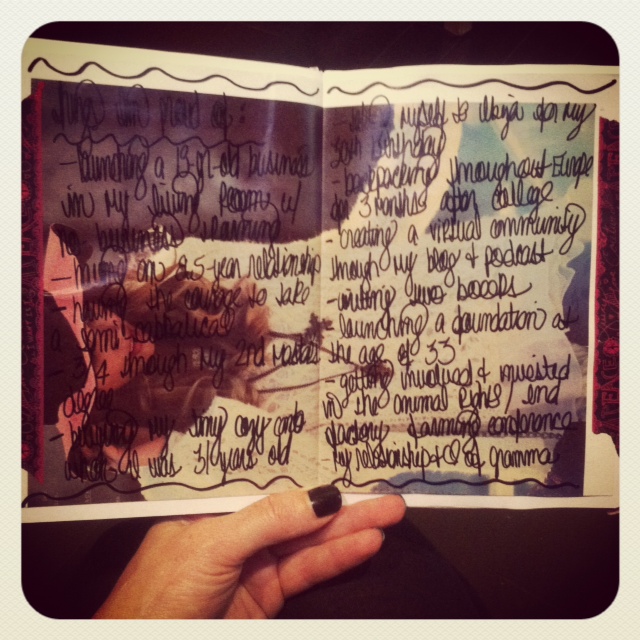 things I'm proud of:
- launching a 13-yr-old business
in my living room w/
no business planning
- having an 2.5-year relationship
- having the courage to take
a semi-sabbatical
- 3/4 through my 2nd masters
degree
- buying my tiny cozy condo
when I was 31 years old
- myself to for my
30th birthday
- backpacking throughout Europe
for 3 months after college
- creating a virtual community
through my blog + podcast
- writing two books
- launching a foundation at
the age of 33
- getting involved + invested
in the animal rights / end
factory farming conference
my relationship + of gramma